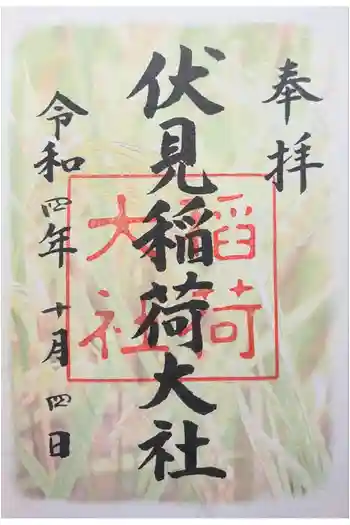 奉拝
伏見稲荷大社
稲荷
大社
令和四年 十月 四日